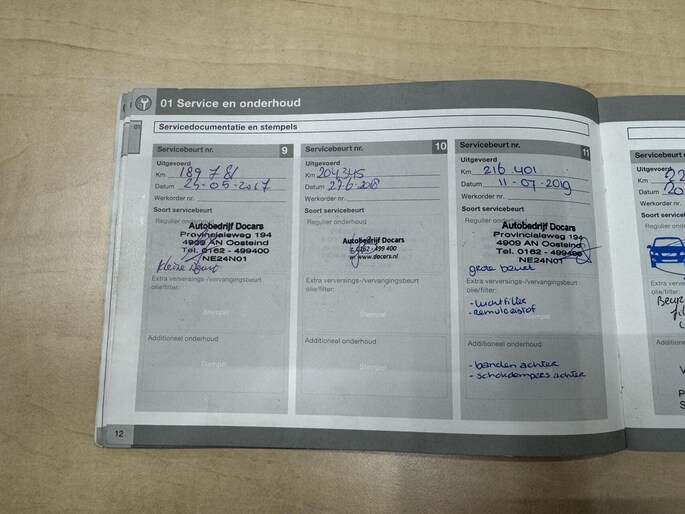 01 Service en onderhoud
01
Servicedocumentatie en stempels
Servicebeurt nr. 9
Uitgevoerd
Km 189 781
Datum 29-05-2017
Werkorder nr.
Soort servicebeurt
Regulier onderhoud
Autobedrijf Docars
Provincialeweg 194
4909 AN Oosteind
Tel. 0162 - 499400
NE24N01
kleine beurt
Extra verversings-/vervangingsbeurt
olie/filter:
Stempel
Additioneel onderhoud
Stempel
Servicebeurt nr. 10
Uitgevoerd
Km 204345
Datum 27-6-2018
Werkorder nr.
Soort servicebeurt
Regulier onderhoud
Autobedrijf Docars
0162 - 499 400
www.docars.nl
Extra verversings-/vervangingsbeurt
olie/filter:
Stempel
Additioneel onderhoud
Stempel
Servicebeurt nr. 11
Uitgevoerd
Km 216 401
Datum 11-07-2019
Werkorder nr.
Soort servicebeurt
Regulier onderhoud
Autobedrijf Docars
Provincialeweg 194
4909 AN Oosteind
Tel. 0162 - 499400
NE24N01
grote beurt
Extra verversings-/vervangingsbeurt
olie/filter:
- luchtfilter
- remvloeistof
Additioneel onderhoud
- banden achter
- schokdempers achter
Servicebeurt
Uitgevoerd
Km 22
Datum 20
Werkorder nr.
Soort service
Extra ververs
olie/filter:
12